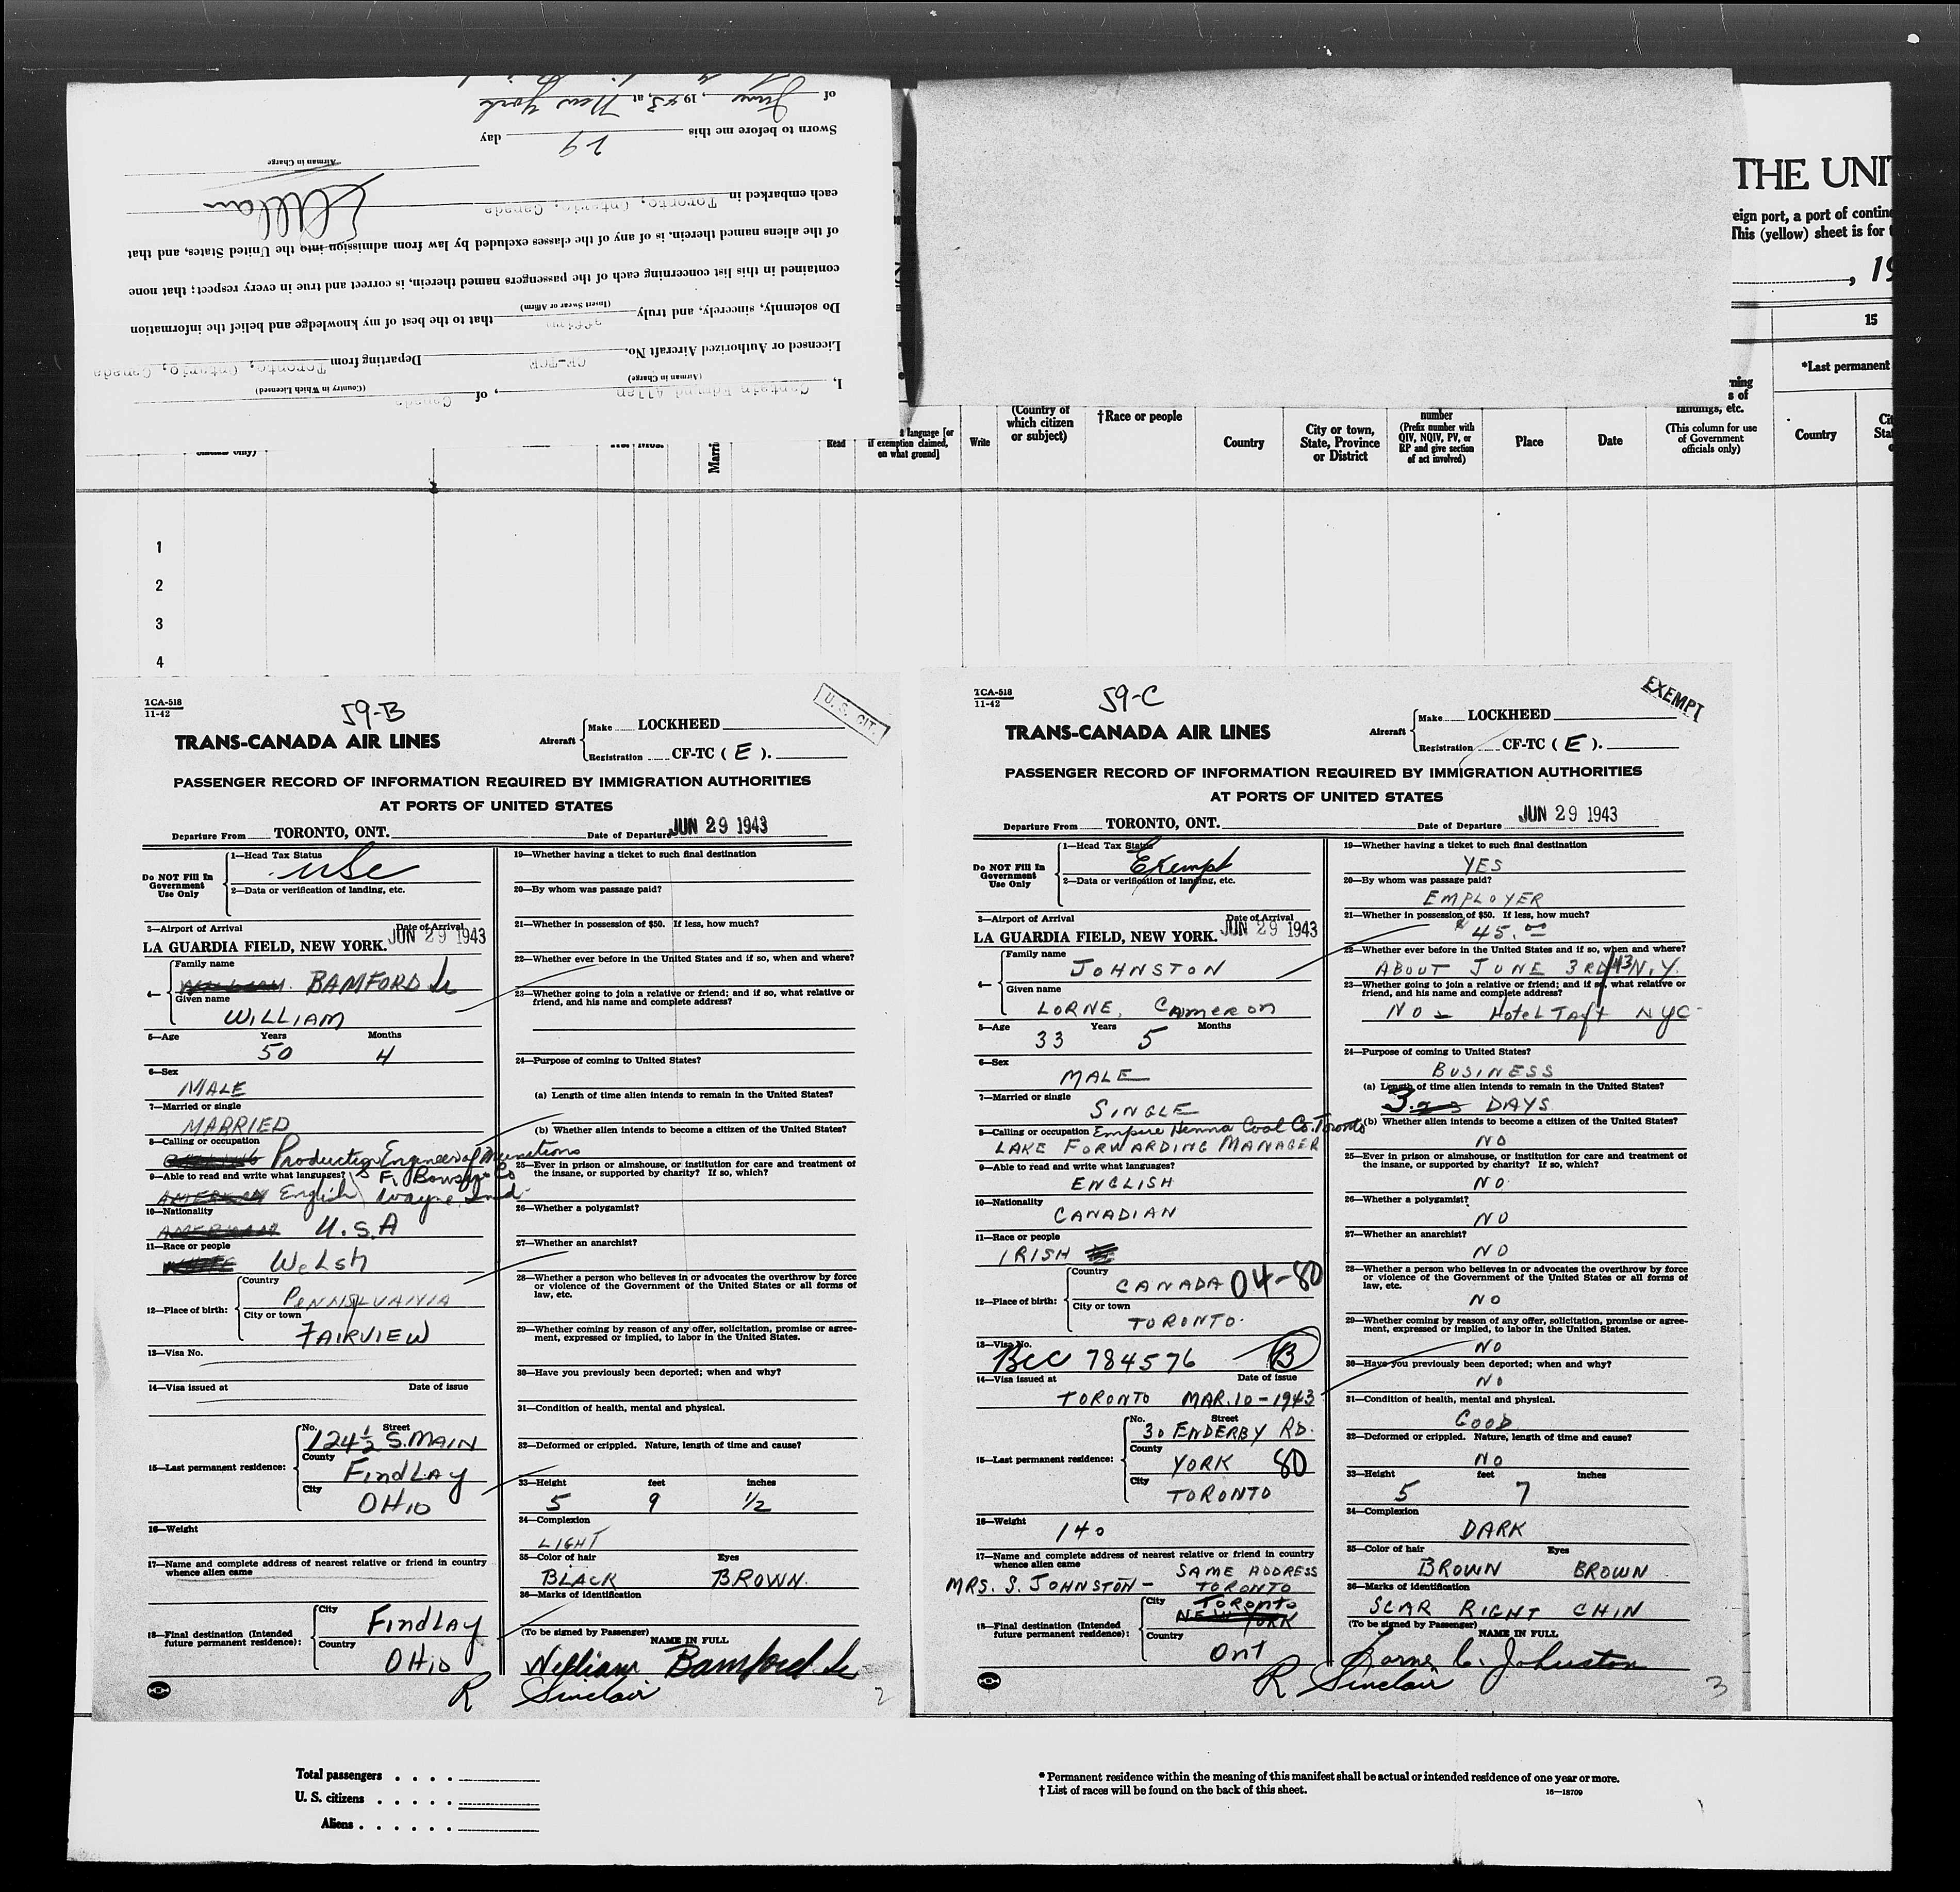 of June, 1943, at New York
Sworn to before me this 29 day
Airman in Charge
each embarked in Toronto, Ontario, Canada
of the aliens named therein, is of any of the classes excluded by law from admission into the United States, and that
contained in this list concerning each of the passengers named therein, is correct and true in every respect; that none
(Insert Swear or Affirm)
Do solemnly, sincerely, and truly affirm that to the best of my knowledge and belief the information
Licensed or Authorized Aircraft No. CF-TCE Departing from Toronto, Ontario, Canada
(Airman in Charge) (Country in Which Licensed)
I, Captain Edmund Allan, of Canada
THE UNI
eign port, a port of contin
This (yellow) sheet is for
, 19
15
*Last permanent
landings, etc.
(This column for use
of Government
officials only)
Read
language [or
if exemption claimed,
on what ground]
Write
(Country of
which citizen
or subject)
†Race or people
Country
City or town,
State, Province
or District
number
(Prefix number with
QIV, NQIV, PV, or
RP and give section
of act involved)
Place
Date
Country
1
2
3
4
TCA-518
11-42
59-B
U. S. CIT.
TRANS-CANADA AIR LINES
Aircraft
Make LOCKHEED
Registration CF-TC ( E ).
PASSENGER RECORD OF INFORMATION REQUIRED BY IMMIGRATION AUTHORITIES
AT PORTS OF UNITED STATES
Departure From TORONTO, ONT. Date of Departure JUN 29 1943
Do NOT Fill In
Government
Use Only
1—Head Tax Status
USC
2—Data or verification of landing, etc.
3—Airport of Arrival Date of Arrival
LA GUARDIA FIELD, NEW YORK. JUN 29 1943
4—
Family name
BAMFORD Sr
Given name
WILLIAM
5—Age Years Months
50 4
6—Sex
MALE
7—Married or single
MARRIED
8—Calling or occupation Production Engineer of Munitions
9—Able to read and write what languages? S F. Bowser Co
AMERICAN English Wayne Ind.
10—Nationality
AMERICAN U.S.A
11—Race or people
WHITE Welsh
12—Place of birth:
Country
PENNSYLVANIA
City or town
FAIRVIEW
13—Visa No.
14—Visa issued at Date of issue
15—Last permanent residence:
No. Street
124½ S. MAIN
County
FINDLAY
City
OHIO
16—Weight
17—Name and complete address of nearest relative or friend in country
whence alien came
18—Final destination (Intended
future permanent residence):
City
FINDLAY
Country
OHIO
19—Whether having a ticket to such final destination
20—By whom was passage paid?
21—Whether in possession of $50. If less, how much?
22—Whether ever before in the United States and if so, when and where?
23—Whether going to join a relative or friend; and if so, what relative or
friend, and his name and complete address?
24—Purpose of coming to United States?
(a) Length of time alien intends to remain in the United States?
(b) Whether alien intends to become a citizen of the United States?
25—Ever in prison or almshouse, or institution for care and treatment of
the insane, or supported by charity? If so, which?
26—Whether a polygamist?
27—Whether an anarchist?
28—Whether a person who believes in or advocates the overthrow by force
or violence of the Government of the United States or all forms of
law, etc.
29—Whether coming by reason of any offer, solicitation, promise or agree-
ment, expressed or implied, to labor in the United States.
30—Have you previously been deported; when and why?
31—Condition of health, mental and physical.
32—Deformed or crippled. Nature, length of time and cause?
33—Height feet inches
5 9 1/2
34—Complexion
LIGHT
35—Color of hair Eyes
BLACK BROWN.
36—Marks of identification
(To be signed by Passenger)
NAME IN FULL
William Bamford Sr
R Sinclair
2
TCA-518
11-42
59-C
EXEMPT
TRANS-CANADA AIR LINES
Aircraft
Make LOCKHEED
Registration CF-TC ( E ).
PASSENGER RECORD OF INFORMATION REQUIRED BY IMMIGRATION AUTHORITIES
AT PORTS OF UNITED STATES
Departure From TORONTO, ONT. Date of Departure JUN 29 1943
Do NOT Fill In
Government
Use Only
1—Head Tax Status
Exempt
2—Data or verification of landing, etc.
3—Airport of Arrival Date of Arrival
LA GUARDIA FIELD, NEW YORK. JUN 29 1943
4—
Family name
JOHNSTON
Given name
LORNE, Cameron
5—Age Years Months
33 5
6—Sex
MALE
7—Married or single
SINGLE
8—Calling or occupation Empire Hanna Coal Co. Toronto
LAKE FORWARDING MANAGER
9—Able to read and write what languages?
ENGLISH
10—Nationality
CANADIAN
11—Race or people
IRISH
12—Place of birth:
Country
CANADA 04-80
City or town
TORONTO.
13—Visa No.
BCC 784576 B
14—Visa issued at Date of issue
TORONTO MAR. 10-1943
15—Last permanent residence:
No. Street
30 ENDERBY RD.
County
YORK 80
City
TORONTO
16—Weight
140
17—Name and complete address of nearest relative or friend in country
whence alien came SAME ADDRESS
MRS. S. JOHNSTON— TORONTO
18—Final destination (Intended
future permanent residence):
City
Toronto
NEW YORK
Country
Ont
19—Whether having a ticket to such final destination
YES
20—By whom was passage paid?
EMPLOYER
21—Whether in possession of $50. If less, how much?
$45.00
22—Whether ever before in the United States and if so, when and where?
ABOUT JUNE 3RD/43 N.Y.
23—Whether going to join a relative or friend; and if so, what relative or
friend, and his name and complete address?
NO - Hotel Taft NYC-
24—Purpose of coming to United States?
BUSINESS
(a) Length of time alien intends to remain in the United States?
3 DAYS
(b) Whether alien intends to become a citizen of the United States?
NO
25—Ever in prison or almshouse, or institution for care and treatment of
the insane, or supported by charity? If so, which?
NO.
26—Whether a polygamist?
NO
27—Whether an anarchist?
NO
28—Whether a person who believes in or advocates the overthrow by force
or violence of the Government of the United States or all forms of
law, etc.
NO
29—Whether coming by reason of any offer, solicitation, promise or agree-
ment, expressed or implied, to labor in the United States.
NO
30—Have you previously been deported; when and why?
NO
31—Condition of health, mental and physical.
GOOD
32—Deformed or crippled. Nature, length of time and cause?
NO
33—Height feet inches
5 7
34—Complexion
DARK
35—Color of hair Eyes
BROWN BROWN
36—Marks of identification
SCAR RIGHT CHIN
(To be signed by Passenger)
NAME IN FULL
Lorne C. Johnston
R Sinclair
3
Total passengers . . . .
U. S. citizens . . . . .
Aliens . . . . . .
* Permanent residence within the meaning of this manifest shall be actual or intended residence of one year or more.
† List of races will be found on the back of this sheet.
16—18709